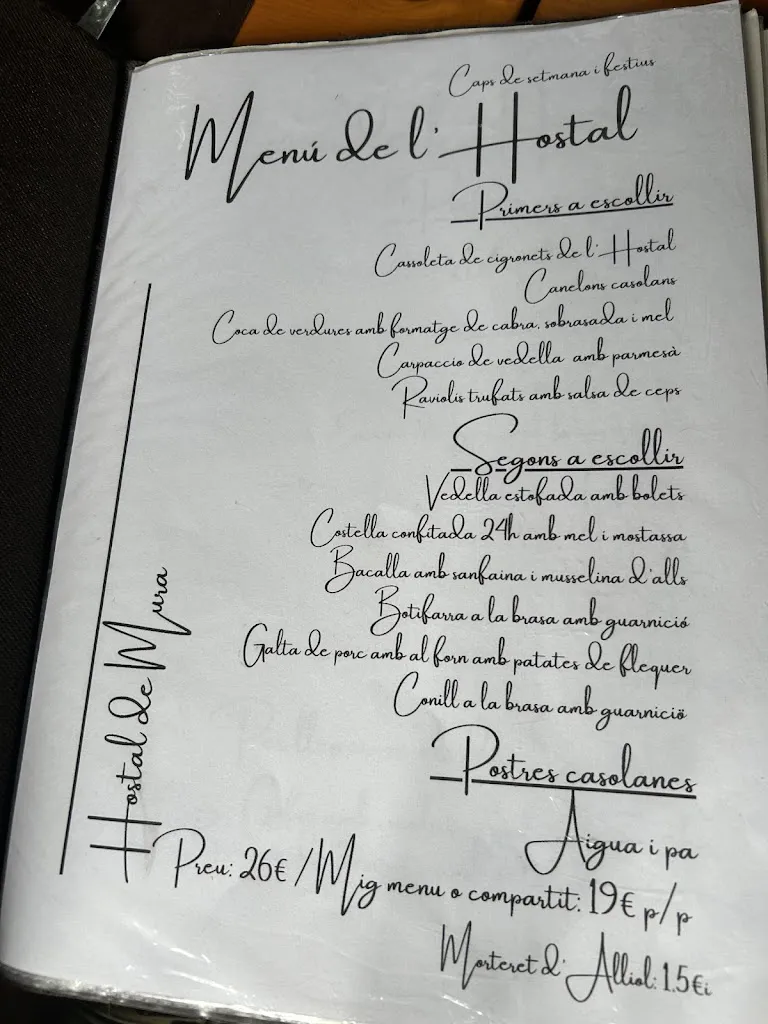 Caps de setmana i festius
Menú de l'Hostal
Primers a escollir
Cassoleta de cigronets de l'Hostal
Canelons casolans
Coca de verdures amb formatge de cabra, sobrasada i mel
Carpaccio de vedella amb parmesà
Raviolis trufats amb salsa de ceps
Segons a escollir
Vedella estofada amb bolets
Costella confitada 24h amb mel i mostassa
Bacalla amb sanfaina i musselina d'alls
Botifarra a la brasa amb guarnició
Galta de porc amb al forn amb patates de flequer
Conill a la brasa amb guarnició
Postres casolanes
Aigua i pa
Preu: 26€ / Mig menu o compartit: 19€ p/p
Morteret d'Alliol: 1.5€i
Hostal de Mura